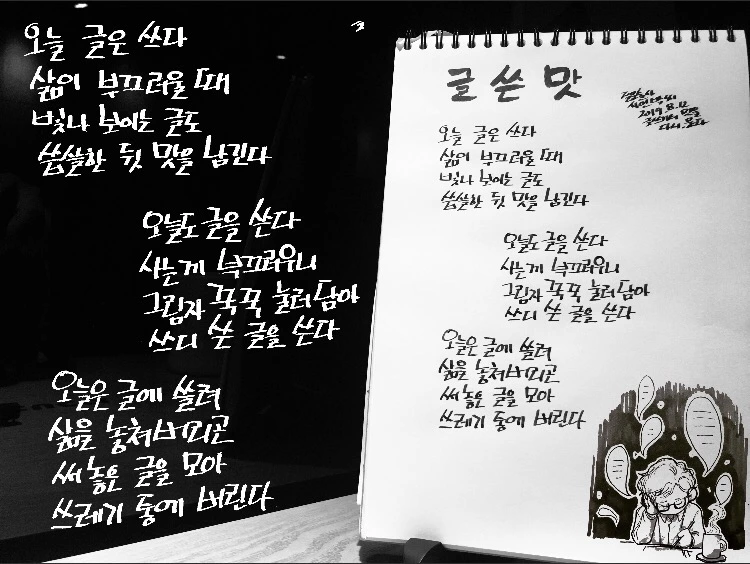 오늘 글은 쓰다
삶이 부끄러울 때
빛나 보이는 글도
씁쓸한 뒷 맛을 남긴다
오늘도 글을 쓴다
사는게 부끄러우니
그림자 꾹꾹 눌러 담아
쓰디 쓴 글을 쓴다
오늘은 글에 쓸려
삶을 놓쳐버리곤
써놓은 글을 모아
쓰레기 통에 버린다
글 쓴 맛
2019. 8. 12
다시. 쓰다
오늘 글은 쓰다
삶이 부끄러울 때
빛나 보이는 글도
씁쓸한 뒷 맛을 남긴다
오늘도 글을 쓴다
사는게 부끄러우니
그림자 꾹꾹 눌러 담아
쓰디 쓴 글을 쓴다
오늘은 글에 쓸려
삶을 놓쳐버리곤
써놓은 글을 모아
쓰레기 통에 버린다